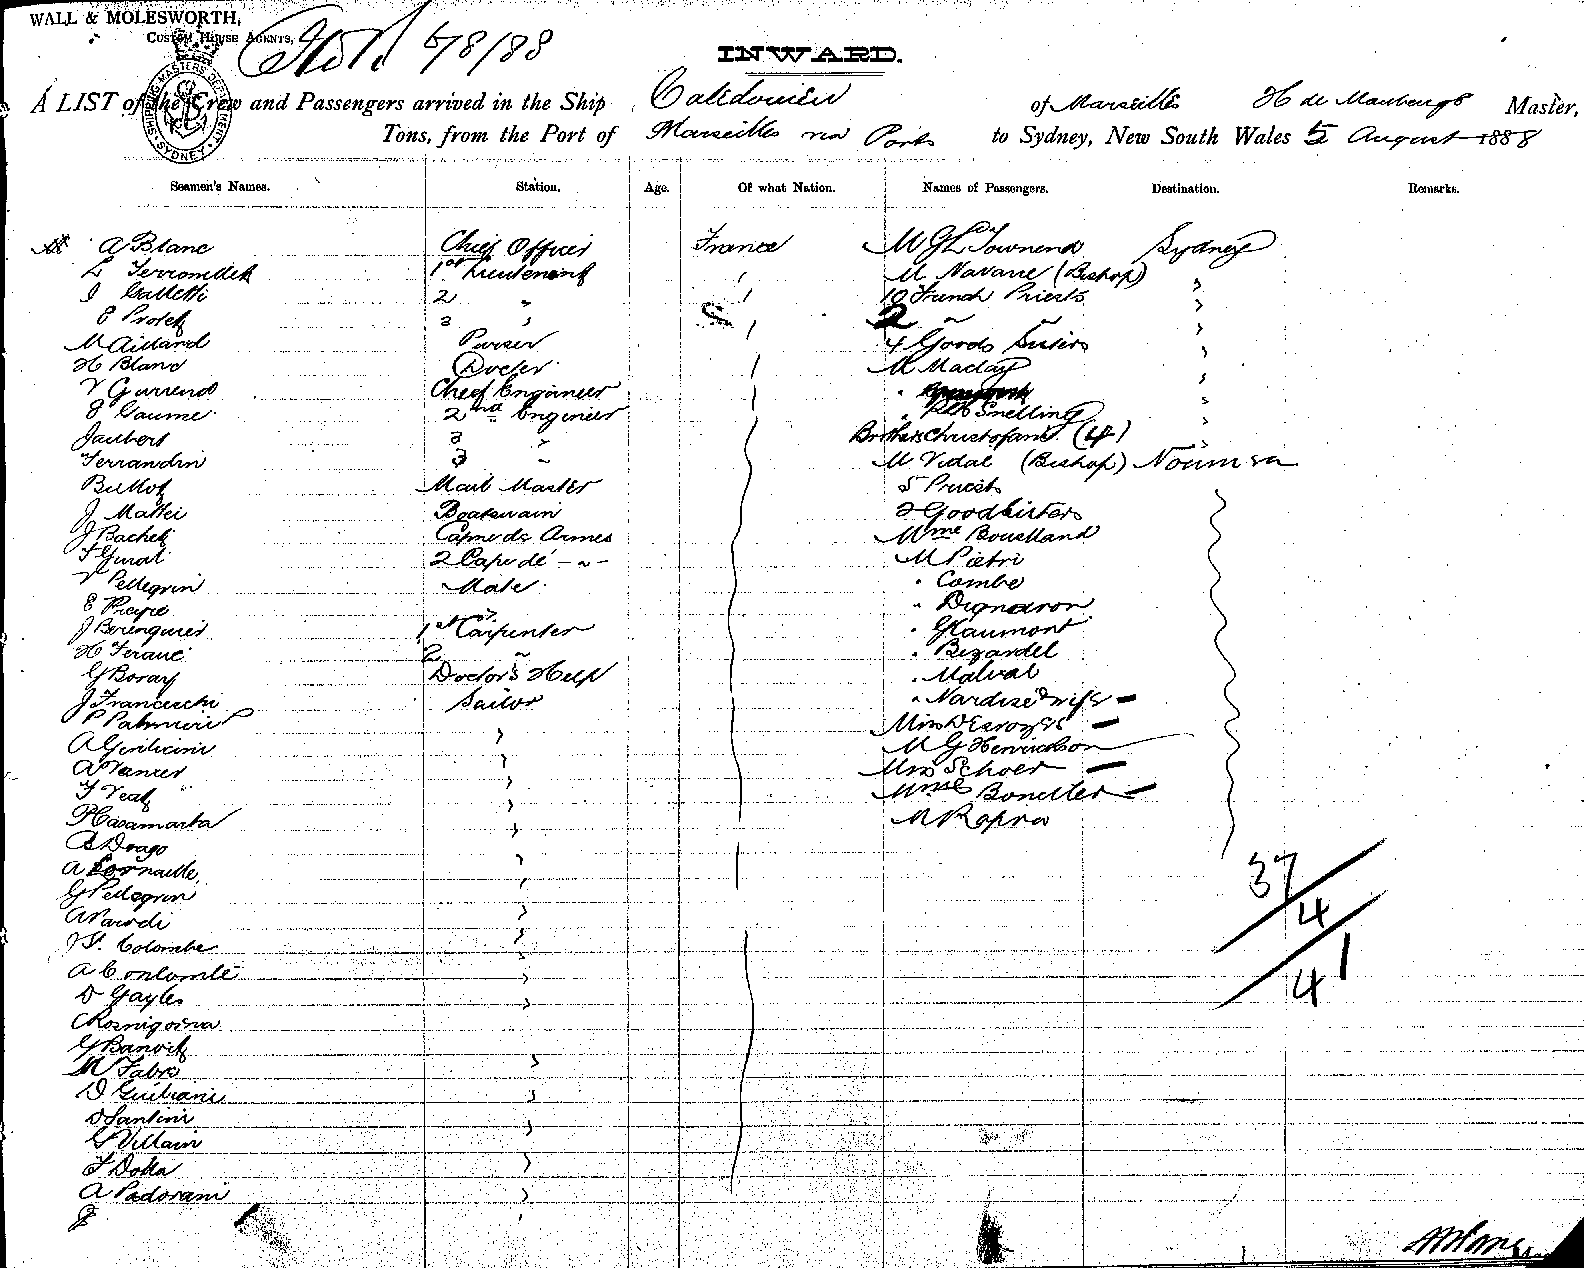 WALL & MOLESWORTH,
CUSTOM HOUSE AGENTS,
6/8/88
INWARD.
SHIPPING MASTERS DEPARTMENT SYDNEY
A LIST of the Crew and Passengers arrived in the Ship Caledonien of Marseilles H de Maubeuge Master,
Tons, from the Port of Marseilles via Ports to Sydney, New South Wales 5 August 1888
Seamen's Names. Station. Age. Of what Nation. Names of Passengers. Destination. Remarks.
A Blanc Chief Officer France M G L Townend Sydney
1st Lieutenant M Navarre (Bishop)
J Galletti 2 " 10 French Priests
E Protet 3 " 2 " "
M Aillard Purser 4 Goods Sisters
H Blanc Doctor M Maclay
V Gurrend Chief Engineer
E Gaume 2nd Engineer Snelling
Jaubert 3 " Brothers Christofani (4)
Ferrandin 3 " M Vidal (Bishop) Noumea
Bullot Mail Master 5 Priests
J Mattei Boatswain 2 Good Sisters
J Bachet Capne de Armes Mme Bouelland
2 Cap de - " - M Pietri
V Pellegrin Mate " Combe
" Dignaron
J Berenguier 1st Carpenter " Glaumont
2 " " Bezardel
G Boray Doctor's Help " Malval
J Franceschi Sailor " Nardize & wife
P Palmieri Miss Desroyes
M G Henrickson
A Vanzer Mrs Schoer
F Veat Mme Bonetter
P Casamarta M Rapra
B Drago
A Cornaille
G Pellegrin
A Parodi
J St. Colombe
A Conlomle
D Gayles
G Banoit
M Fabre
D Guiliani
D Santini
G Villain
F Dolla
A Padovani
37
4
41